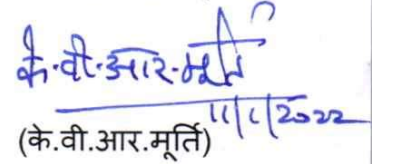 के.वी.आर.मूर्ति
11/1/2022
(के.वी.आर.मूर्ति)